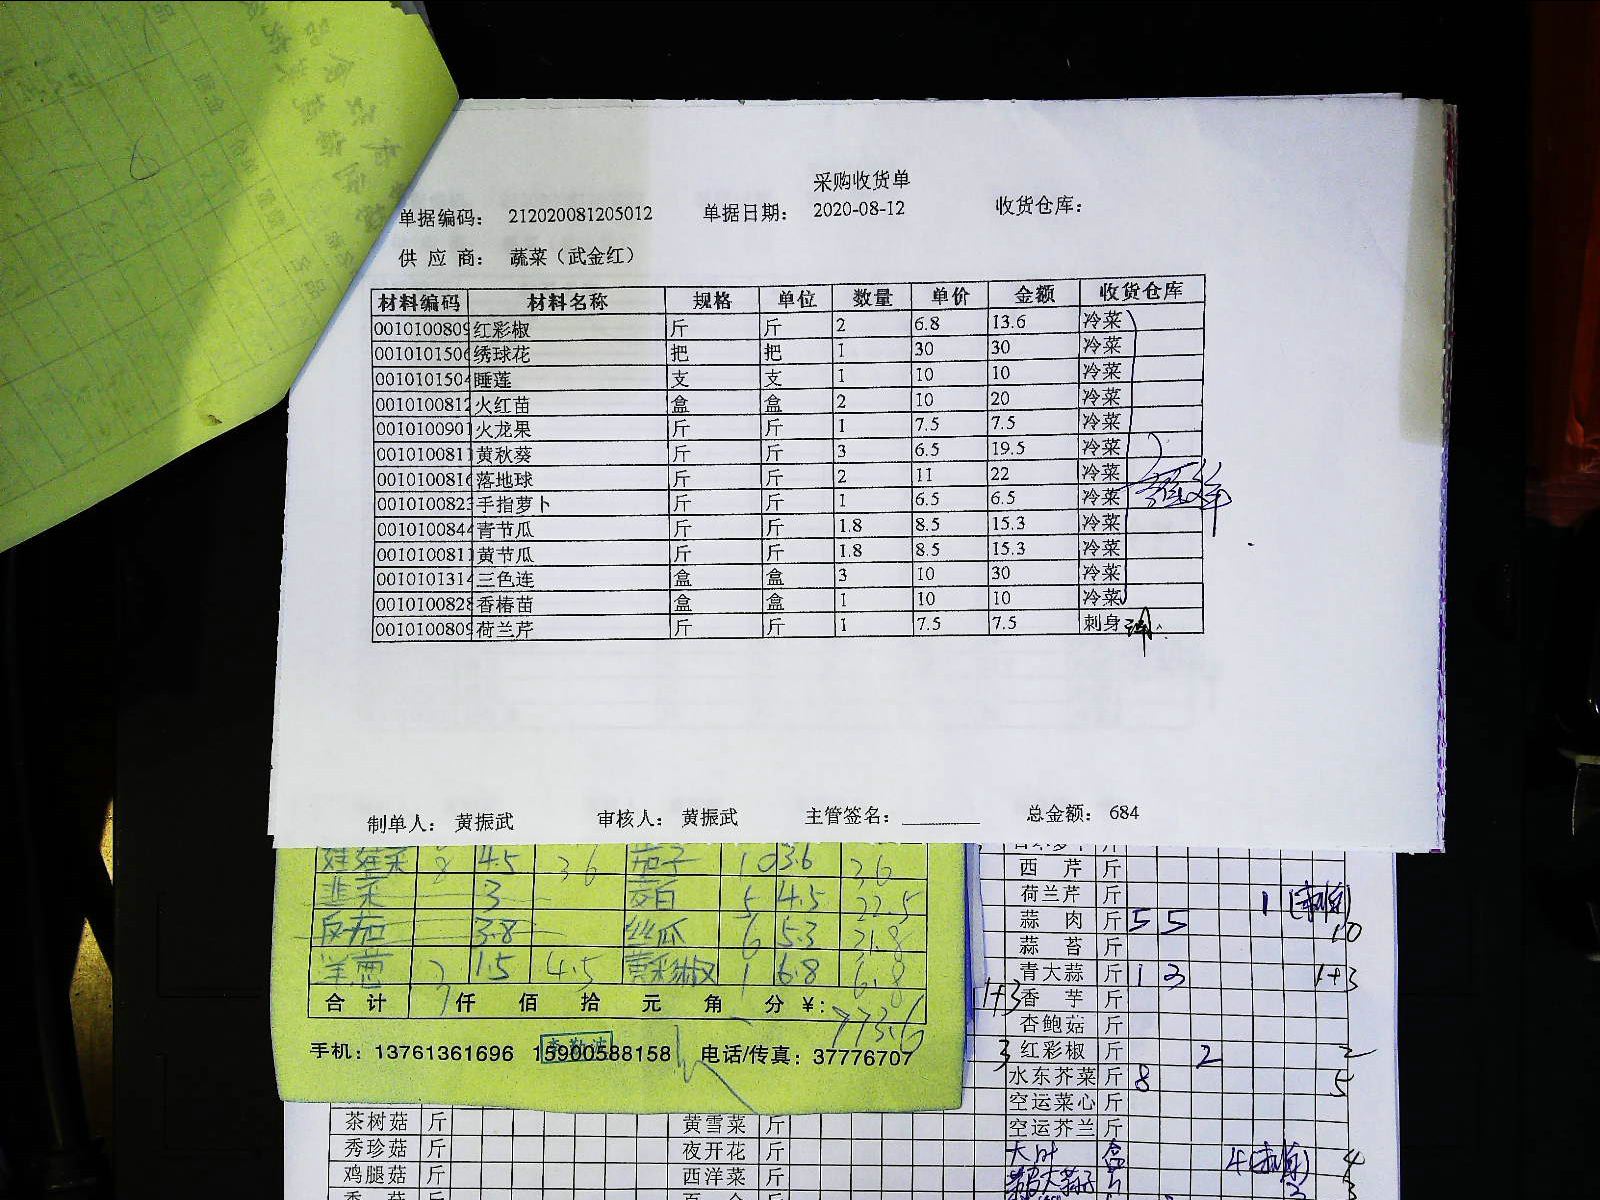 采购收货单
单据编码： 212020081205012 单据日期： 2020-08-12 收货仓库：
供 应 商： 蔬菜（武金红）
材料编码 材料名称 规格 单位 数量 单价 金额 收货仓库
0010100809 红彩椒 斤 斤 2 6.8 13.6 冷菜
0010101506 绣球花 把 把 1 30 30 冷菜
0010101504 睡莲 支 支 1 10 10 冷菜
0010100812 火红苗 盒 盒 2 10 20 冷菜
0010100901 火龙果 斤 斤 1 7.5 7.5 冷菜
0010100811 黄秋葵 斤 斤 3 6.5 19.5 冷菜
0010100816 落地球 斤 斤 2 11 22 冷菜
0010100823 手指萝卜 斤 斤 1 6.5 6.5 冷菜
0010100844 青节瓜 斤 斤 1.8 8.5 15.3 冷菜
0010100811 黄节瓜 斤 斤 1.8 8.5 15.3 冷菜
0010101314 三色连 盒 盒 3 10 30 冷菜
0010100828 香椿苗 盒 盒 1 10 10 冷菜
0010100809 荷兰芹 斤 斤 1 7.5 7.5 刺身
制单人： 黄振武 审核人： 黄振武 主管签名： 总金额： 684
娃娃菜 8 4.5 36 茄子 10 3.6 36
韭菜 3 茭白 5 4.5 22.5
3.8 丝瓜 6 5.3 31.8
洋葱 3 1.5 4.5 黄彩椒 1 6.8 6.8
合 计 仟 佰 拾 元 角 分 ￥: 773.6
手机：13761361696 15900588158 电话/传真：37776707
西 芹 斤
荷兰芹 斤 1
蒜 肉 斤 5 5 10
蒜 苔 斤
青大蒜 斤 1 3 1+3
1+3 香 芋 斤
杏鲍菇 斤
3 红彩椒 斤 2 2
水东芥菜 斤 8 5
空运菜心 斤
空运芥兰 斤
大叶 盒 4 4
茶树菇 斤 黄雪菜 斤
秀珍菇 斤 夜开花 斤
鸡腿菇 斤 西洋菜 斤